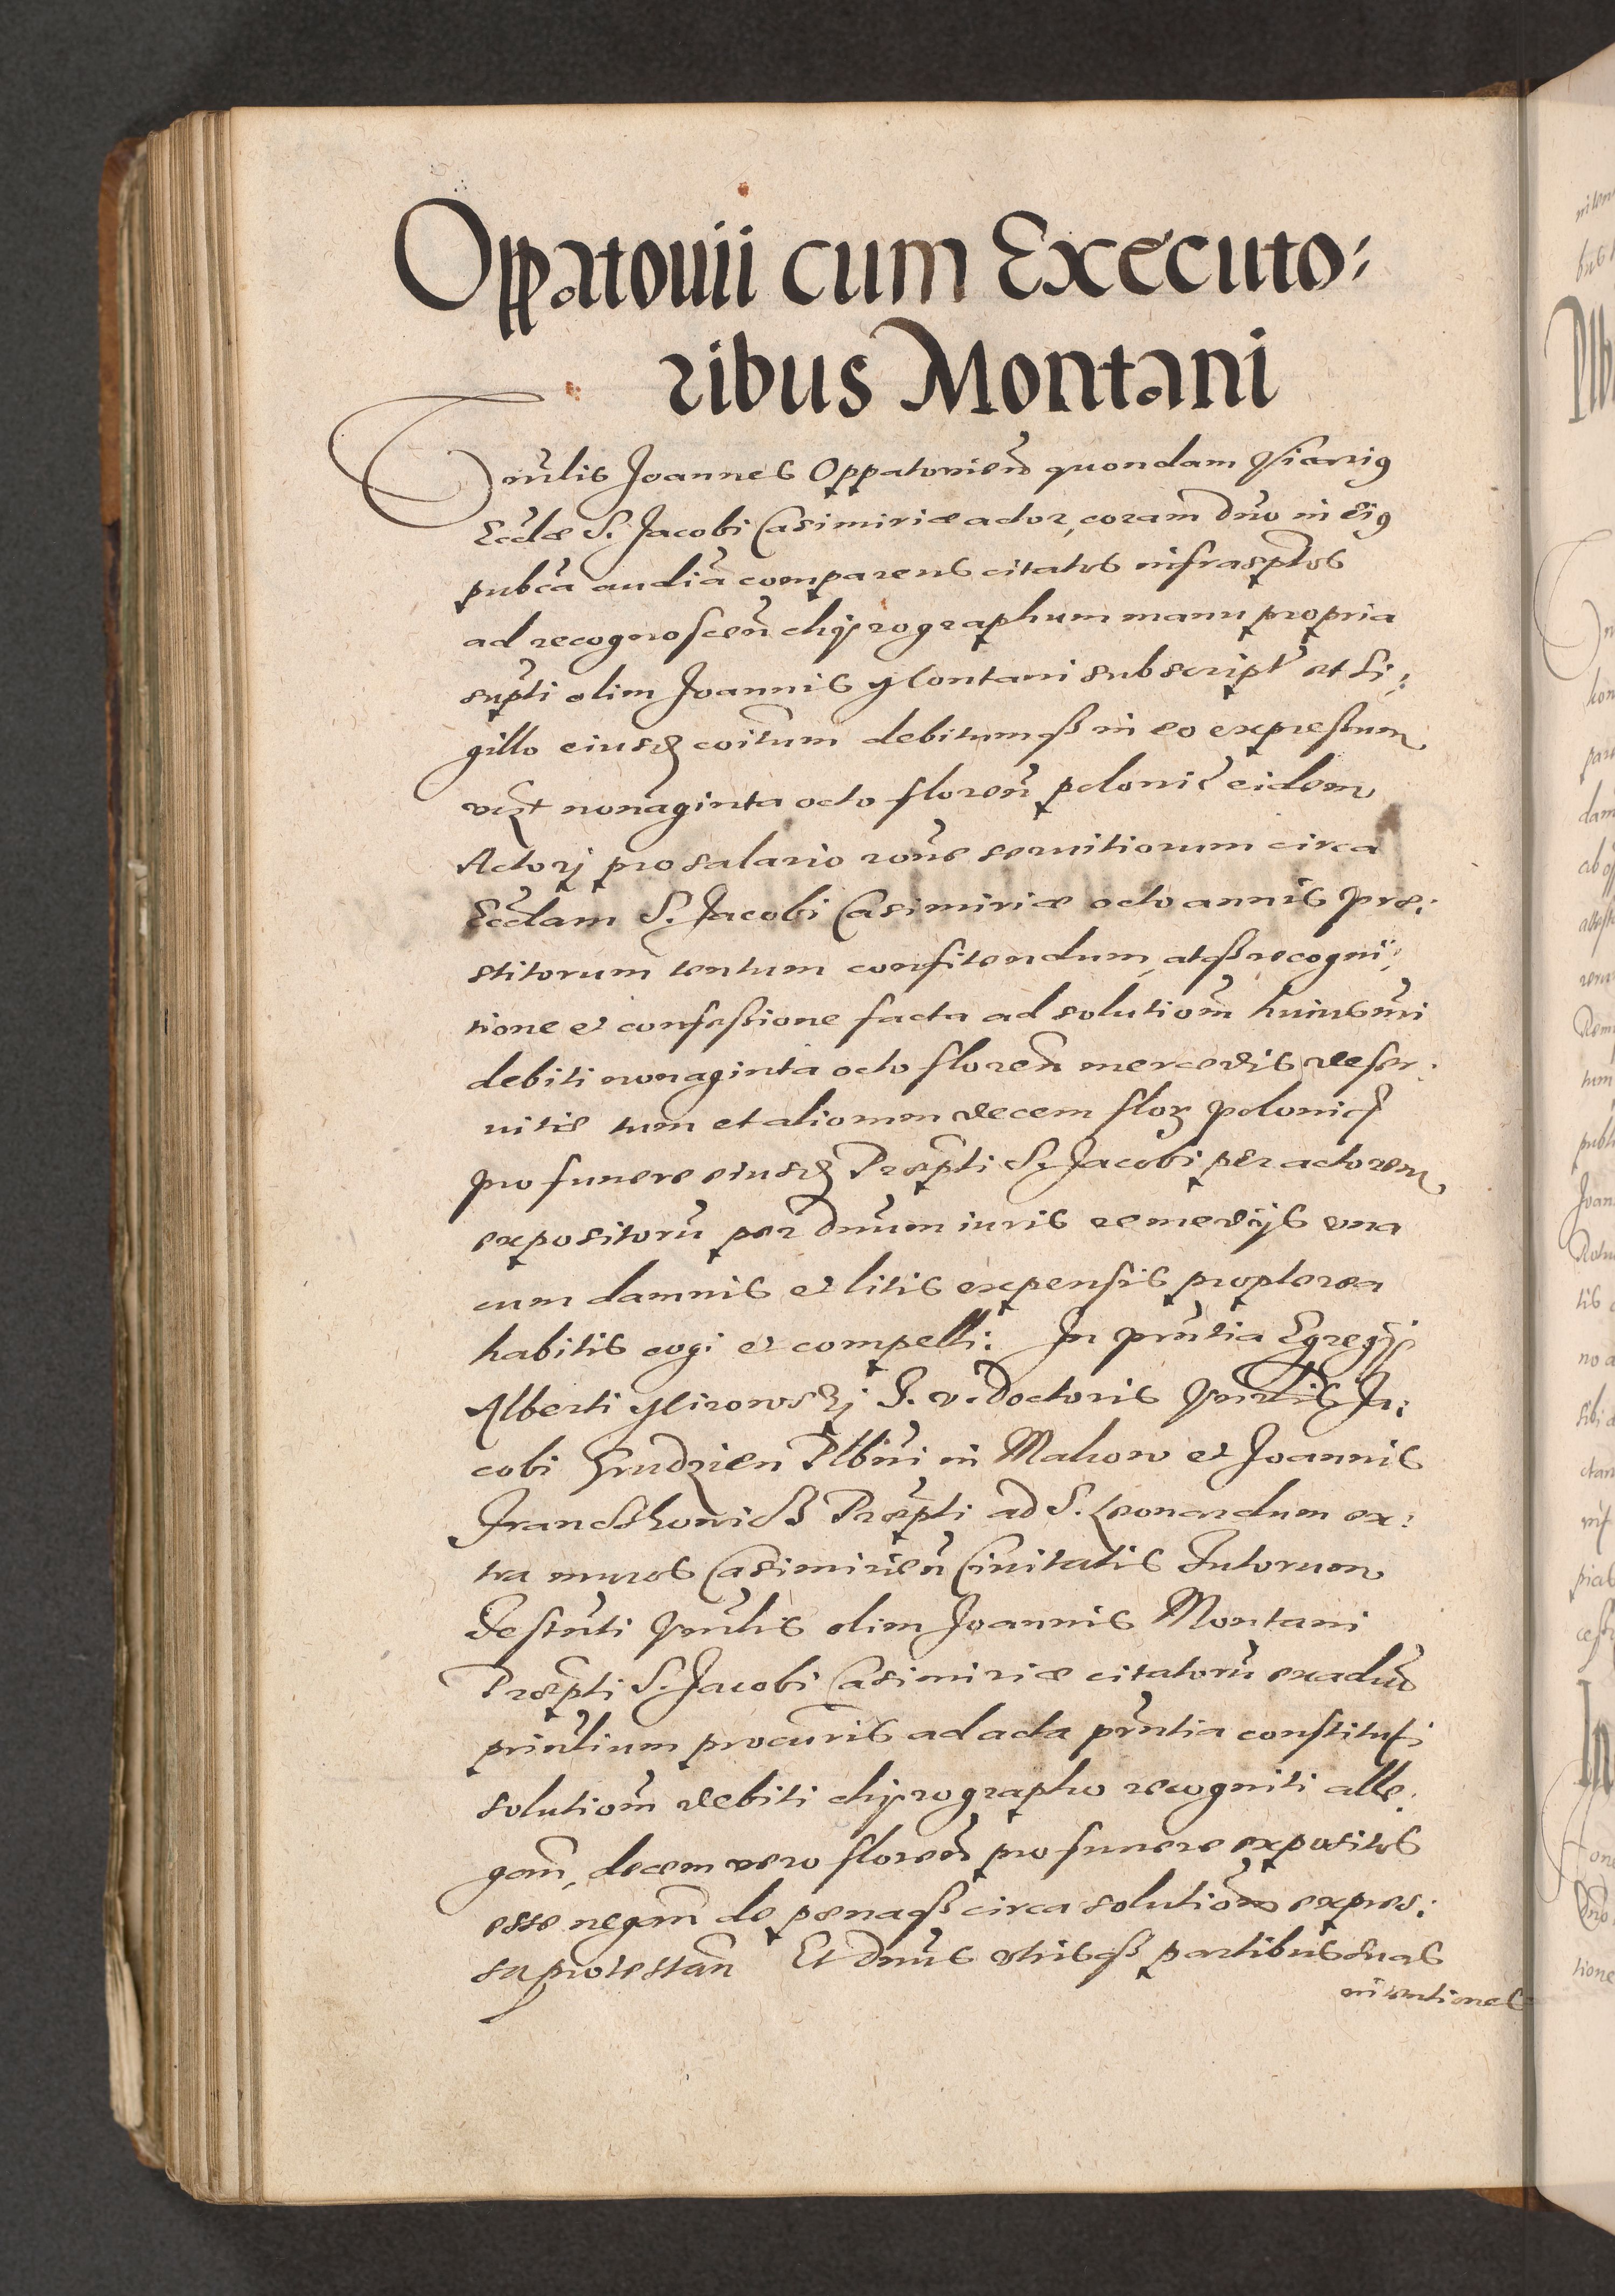 Oppatouii cum Executo:
ribus Montani
Dnūlis Joannes Oppatouien̄ quondam vicarius
Ecclæ S. Jacobi Casimiriæ actor, coram Dno in eius
pubca audia comparens citatos infrasptos
ad recognoscen̄ chyrographum manu propria
supti olim Joannis Montani subscript et si:
gillo eiusd coitum debitumq in eo expressum
vizt nonaginta octo floren̄ polonic eidem
Actorj pro salario rone seruitiorum circa
Ecclam S. Jacobi Casimiriæ octo annis præ:
stitorum tentum confitendum, atq recogni:
tione et confessione facta ad solutiom huiusmi
debiti nonaginta octo floren̄ mercedis deser:
uitæ tum et aliorum decem flor polonic
pro funere eiusd Præpti S. Jacobi per actorem
expositorū per dnum iuris remedijs vna
cum damnis et litis expensis propterea
habitis cogi et compelli: In pntia Egregij
Alberti Mirowskj J. v. Doctoris vnrlis Ja:
cobi Grudzien Plbni in Makow et Joannis
Præpti ad S. Leonardum ex:
tra muros Casimirien̄ Ciuitatis Tutorum
Testnti vnlis olim Joannis Montani
Præpti S. Jacobi Casimiriæ citatorū
prinlium procuris ad acta pntia constituti
solutiom debiti chyrographo recogniti alle:
gan̄, decem vero floren̄ pro funere expositos
esse negan̄ de pænaq circa solutiom expres:
sa protestan̄ Et Dnus vtrisq partibus suas
intentiones